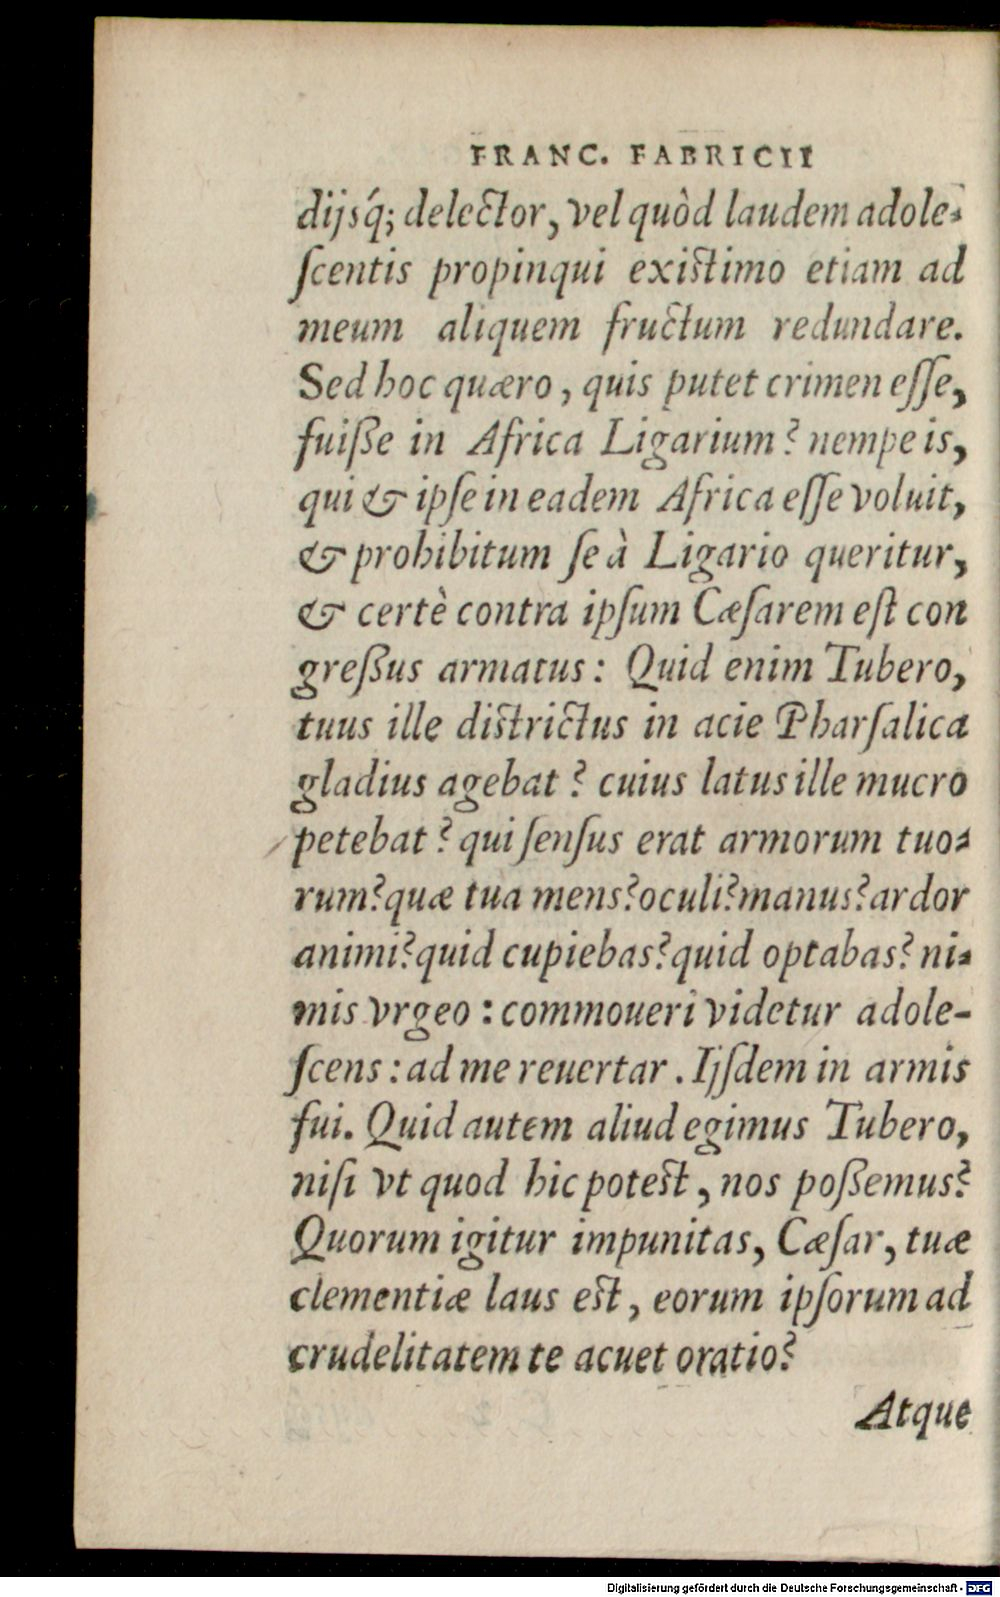 FRANC. FABRICII
dijsq́; delector, vel quòd laudem adole-
ſcentis propinqui existimo etiam ad
meum aliquem fructum redundare.
Sed hoc quæro, quis putet crimen eſſe,
fuiße in Africa Ligarium? nempe is,
qui & ipſe in eadem Africa eſſe voluit,
& prohibitum ſe à Ligario queritur,
& certè contra ipſum Cæſarem eſt con
greßus armatus: Quid enim Tubero,
tuus ille districtus in acie Pharſalica
gladius agebat? cuius latus ille mucro
petebat? qui ſenſus erat armorum tuo-
rum? quæ tua mens? oculi? manus? ardor
animi? quid cupiebas? quid optabas? ni-
mis vrgeo: commoueri videtur adole-
ſcens: ad me reuertar. Ijſdem in armis
fui. Quid autem aliud egimus Tubero,
niſi vt quod hic potest, nos poßemus?
Quorum igitur impunitas, Cæſar, tuæ
clementiæ laus est, eorum ipſorum ad
crudelitatem te acuet oratio?
Atque
Digitalisierung gefördert durch die Deutsche Forschungsgemeinschaft - DFG